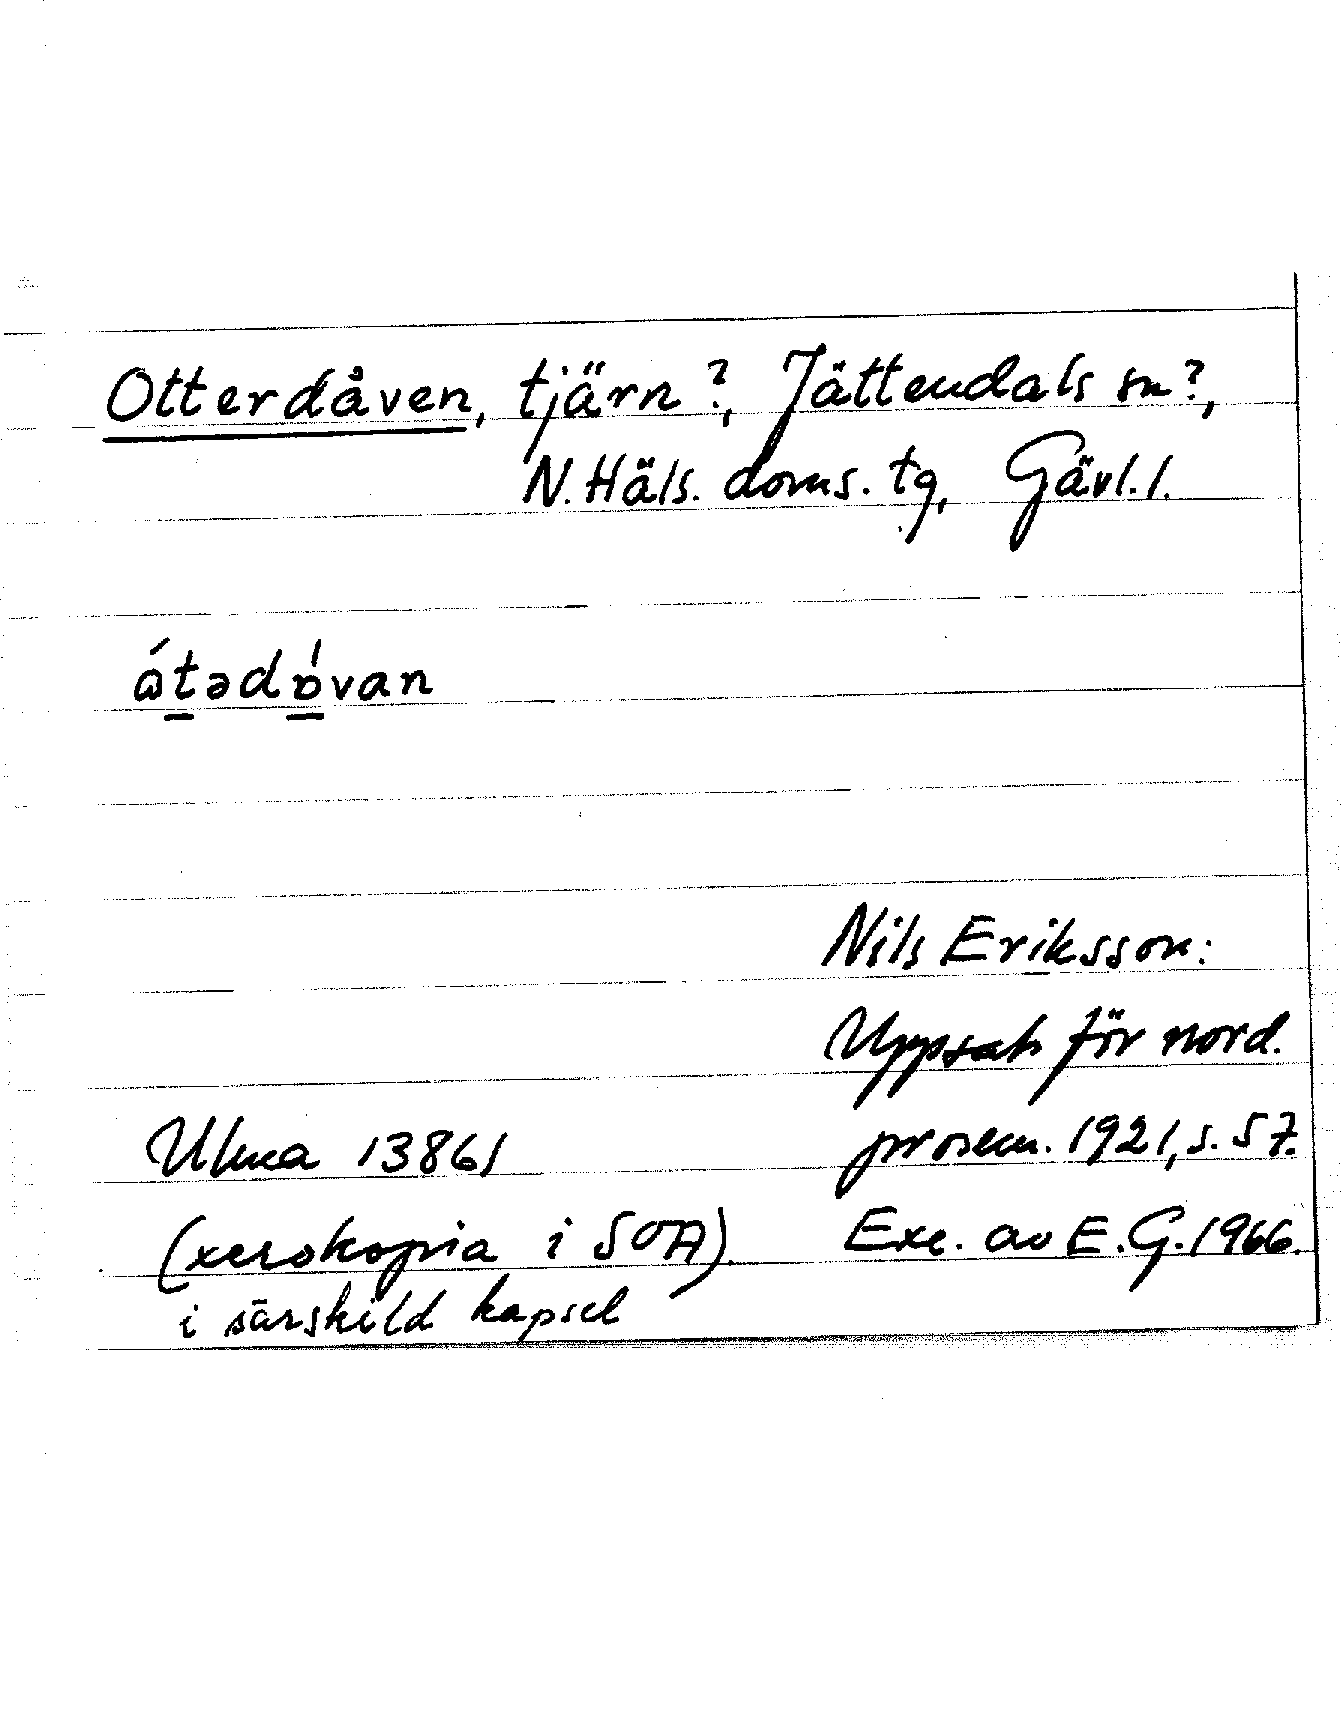 Otterdåven, tjärn?, Jättendals sn?,
N. Häls. doms. tg, Gävl. l.
átədóvan
Nils Eriksson:
Uppsats för nord.
prosem. 1921, s. 57.
Ulma 13861
(xerokopia i SOA). Exc. av E.G. 1966.
i särskild kapsel